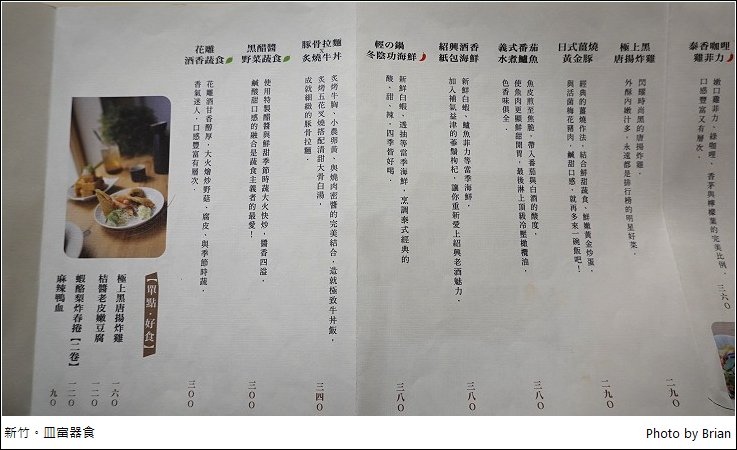 泰香咖哩
雞菲力
嫩口雞菲力、綠咖哩、香茅與檸檬葉的完美比例,
口感豐富又有層次。
三六〇
極上黑
唐揚炸雞
閃耀時尚黑的唐揚炸雞,
外酥內嫩汁多,永遠都是排行榜的明星好菜。
二九〇
日式薑燒
黃金豚
經典的薑燒作法,結合鮮甜蔬食、鮮嫩黃金炒蛋,
與活菌梅花豬肉,鹹甜口感,就再多來一碗飯吧!
二九〇
義式番茄
水煮鱸魚
魚皮煎至焦脆,帶入番茄與白酒的酸度,
使魚肉更顯鮮甜開胃,最後淋上頂級冷壓橄欖油,
色香味俱全。
三八〇
紹興酒香
紙包海鮮
新鮮白蝦、鱸魚菲力等當季海鮮,
加入補氣益津的蔘鬚枸杞,讓你重新愛上紹興老酒魅力。
三八〇
輕の鍋
冬陰功海鮮
新鮮白蝦、透抽等當季海鮮,烹調泰式經典的
酸、甜、辣,四季皆好喝。
三八〇
豚骨拉麵
炙燒牛丼
炙烤牛胸、小農卵黃、與燒肉密醬的完美結合,造就極致牛丼飯,
炙烤五花叉燒搭配清甜大骨白湯,
成就細緻的豚骨拉麵。
三四〇
黑醋醬
野菜蔬食
使用特製醋醬與鮮甜季節時蔬大火快炒,醬香四溢,
鹹酸甜口感的融合是蔬食主義者的最愛!
三〇〇
花雕
酒香蔬食
花雕酒甘香醇厚,大火燴炒野菇、腐皮、與季節時蔬,
香氣迷人,口感豐富有層次。
三〇〇
【單點.好食】
極上黑唐揚炸雞 一六〇
桔醬老皮嫩豆腐 一二〇
蝦酪梨炸春捲【二卷】 一二〇
麻辣鴨血 九〇
新竹。皿富器食
Photo by Brian